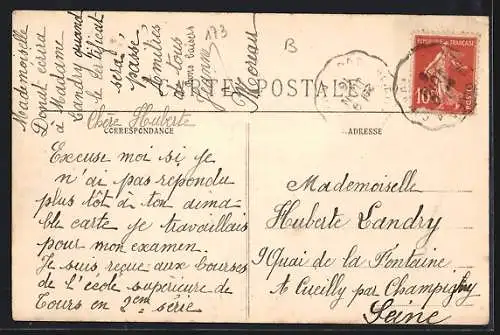 Mademoiselle
Donet écrira
à Madame
Landry quand
le certificat
sera
passé
familles
de tous
bons baisers
Jeanne
Moreau
173
B
CARTE POSTALE
RÉPUBLIQUE FRANÇAISE
10
POSTES
Chère Huberte
CORRESPONDANCE
ADRESSE
Excuse moi si je
n'ai pas répondu
plus tôt à ton aima
ble carte je travaillais
pour mon examen.
Je suis reçue aux bourses
de l'école supérieure de
Tours en 2ème série
Mademoiselle
Huberte Landry
9 Quai de la Fontaine
A Cueilly par Champigny
Seine